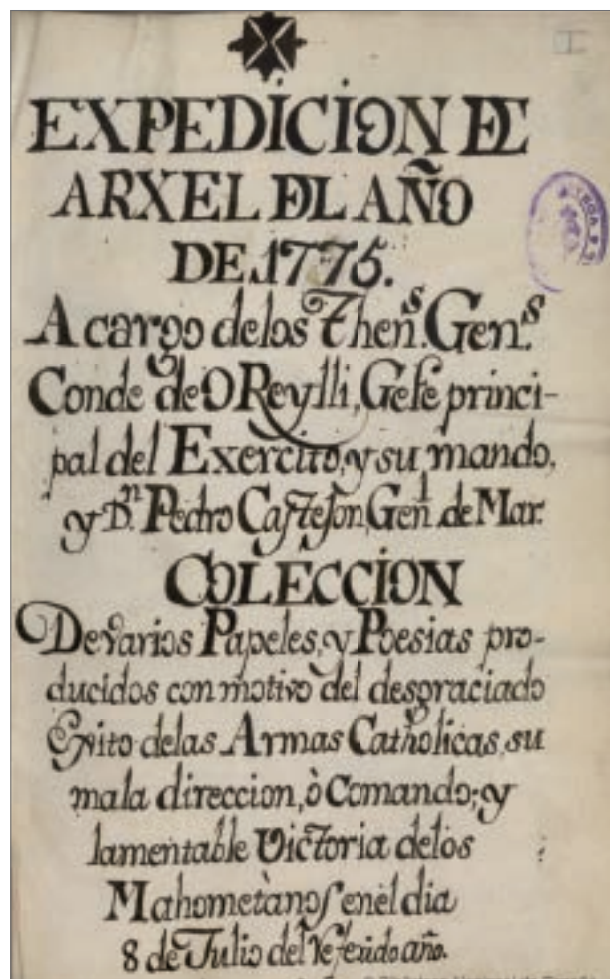 EXPEDICION DE
ARXEL DEL AÑO
DE 1775.
A cargo delos Then.s Gen.s
Conde de O Reylli, Gefe princi-
pal del Exercito, y su mando,
y D.n Pedro Castejon, Gen.l de Mar.
COLECCION
De varios Papeles, y Poesias pro-
ducidos con motivo del desgraciado
Exito delas Armas Catholicas, su
mala direccion, ò Comando; y
lamentable Victoria delos
Mahometànos en el dia
8 de Julio del referido año.